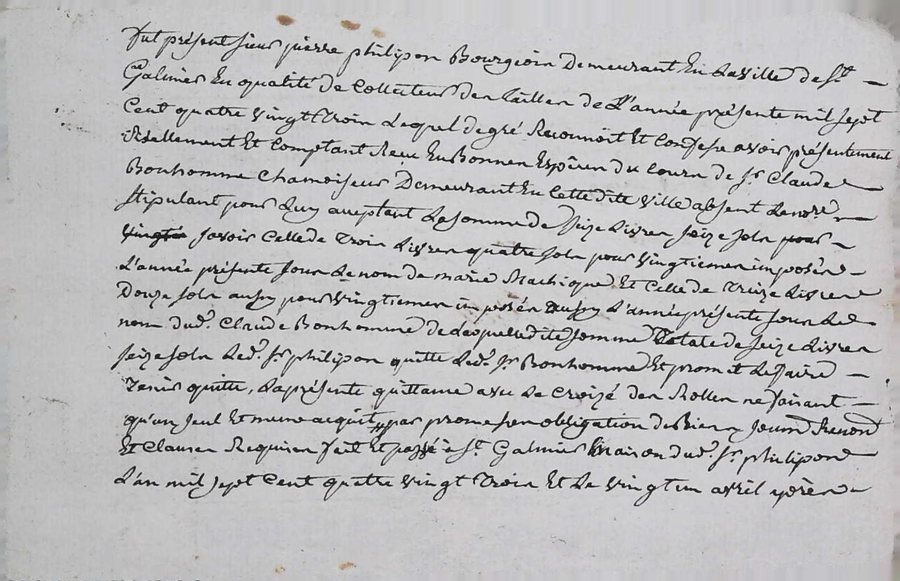 fut présent sieur pierre philipon Bourgeois Demeurant En La Ville de St
Galmier En qualité de Collecteur des Tailles de L'année présente mil sept
Cent quatre vingt Trois Lequel de gré Reconnoit Et Confesse avoir présentement
Réellement Et Comptant Reçu En Bonnes Espèces du Cours de Sr Claude
Bonhomme Chamoiseur Demeurant En Cette dite Ville absent Le nore
stipulant pour Luy acceptant La somme de seize Livres seize sols pour
vingtie savoir Celle de Trois Livres quatre sols pour vingtiemes imposés
L'année présente sous Le nom de marie Machique Et Celle de Treize Livres
Douze sols aussy pour vingtiemes imposés aussy L'année présente sous Le
nom dud. Claude Bonhomme de Laquelle dite somme Totale de seize Livres
seize sols Led. Sr philipon quitte Led. Sr Bonhomme Et promet Le faire
Tenir quitte, La présente quittance avec Le Croizé des Rolles ne faisant
qu'un seul Et meme acquit par promesses obligation de Biens soumon Renon
Et Clauses Requises fait Et passé à St Galmier Maison dud. Sr philipon
L'an mil sept Cent quatre vingt Trois Et Le vingt un avril après